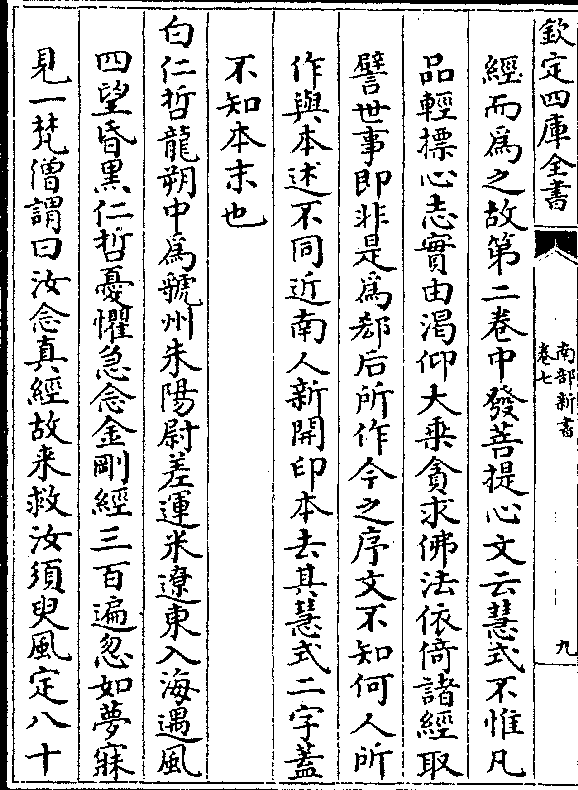 欽定四庫全書
南部新書
卷七
九
經而為之故第二卷中發菩提心文云慧式不惟凡
品輕摽心志實由渴仰大乗貪求佛法依倚諸經取
譬世事即非是為郄后所作今之序文不知何人所
作與本述不同近南人新開印本去其慧式二字蓋
不知本末也
白仁哲龍朔中為虢州朱陽尉差運米遼東入海遇風
四望昏黑仁哲憂懼急念金剛經三百遍忽如夢寐
見一梵僧謂曰汝念真經故来救汝須臾風定八十